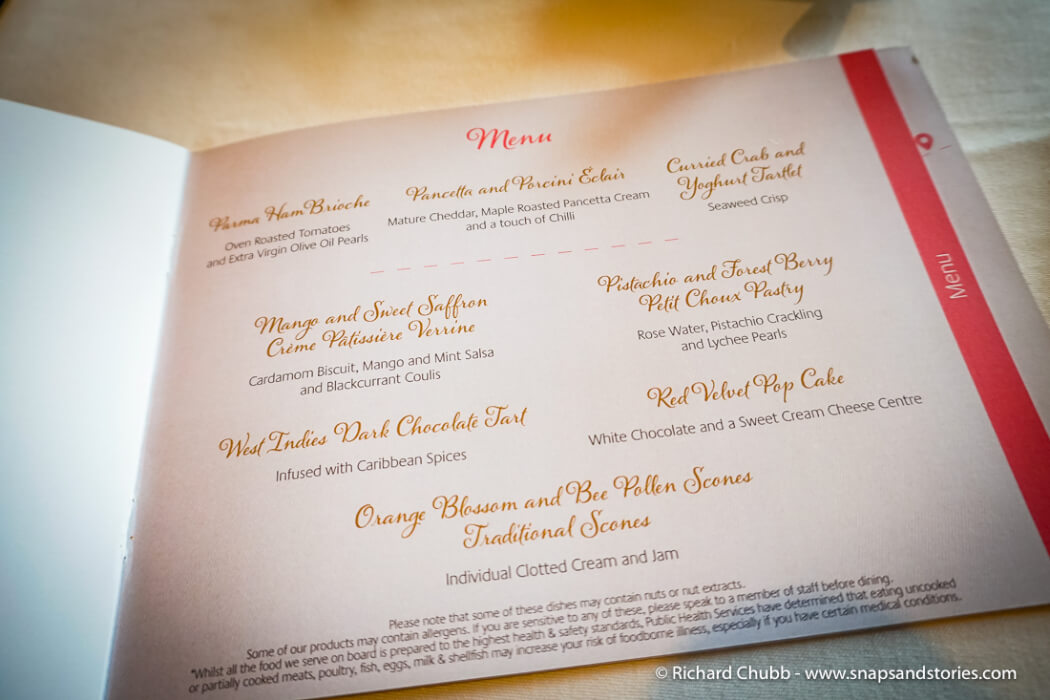 Menu
Parma Ham Brioche
Oven Roasted Tomatoes
and Extra Virgin Olive Oil Pearls
Pancetta and Porcini Éclair
Mature Cheddar, Maple Roasted Pancetta Cream
and a touch of Chilli
Curried Crab and
Yoghurt Tartlet
Seaweed Crisp
Mango and Sweet Saffron
Crème Pâtissière Verrine
Cardamom Biscuit, Mango and Mint Salsa
and Blackcurrant Coulis
Pistachio and Forest Berry
Petit Choux Pastry
Rose Water, Pistachio Crackling
and Lychee Pearls
West Indies Dark Chocolate Tart
Infused with Caribbean Spices
Red Velvet Pop Cake
White Chocolate and a Sweet Cream Cheese Centre
Orange Blossom and Bee Pollen Scones
Traditional Scones
Individual Clotted Cream and Jam
Please note that some of these dishes may contain nuts or nut extracts.
Some of our products may contain allergens. If you are sensitive to any of these, please speak to a member of staff before dining.
*Whilst all the food we serve on board is prepared to the highest health & safety standards, Public Health Services have determined that eating uncooked
or partially cooked meats, poultry, fish, eggs, milk & shellfish may increase your risk of foodborne illness, especially if you have certain medical conditions.
Menu
© Richard Chubb - www.snapsandstories.com